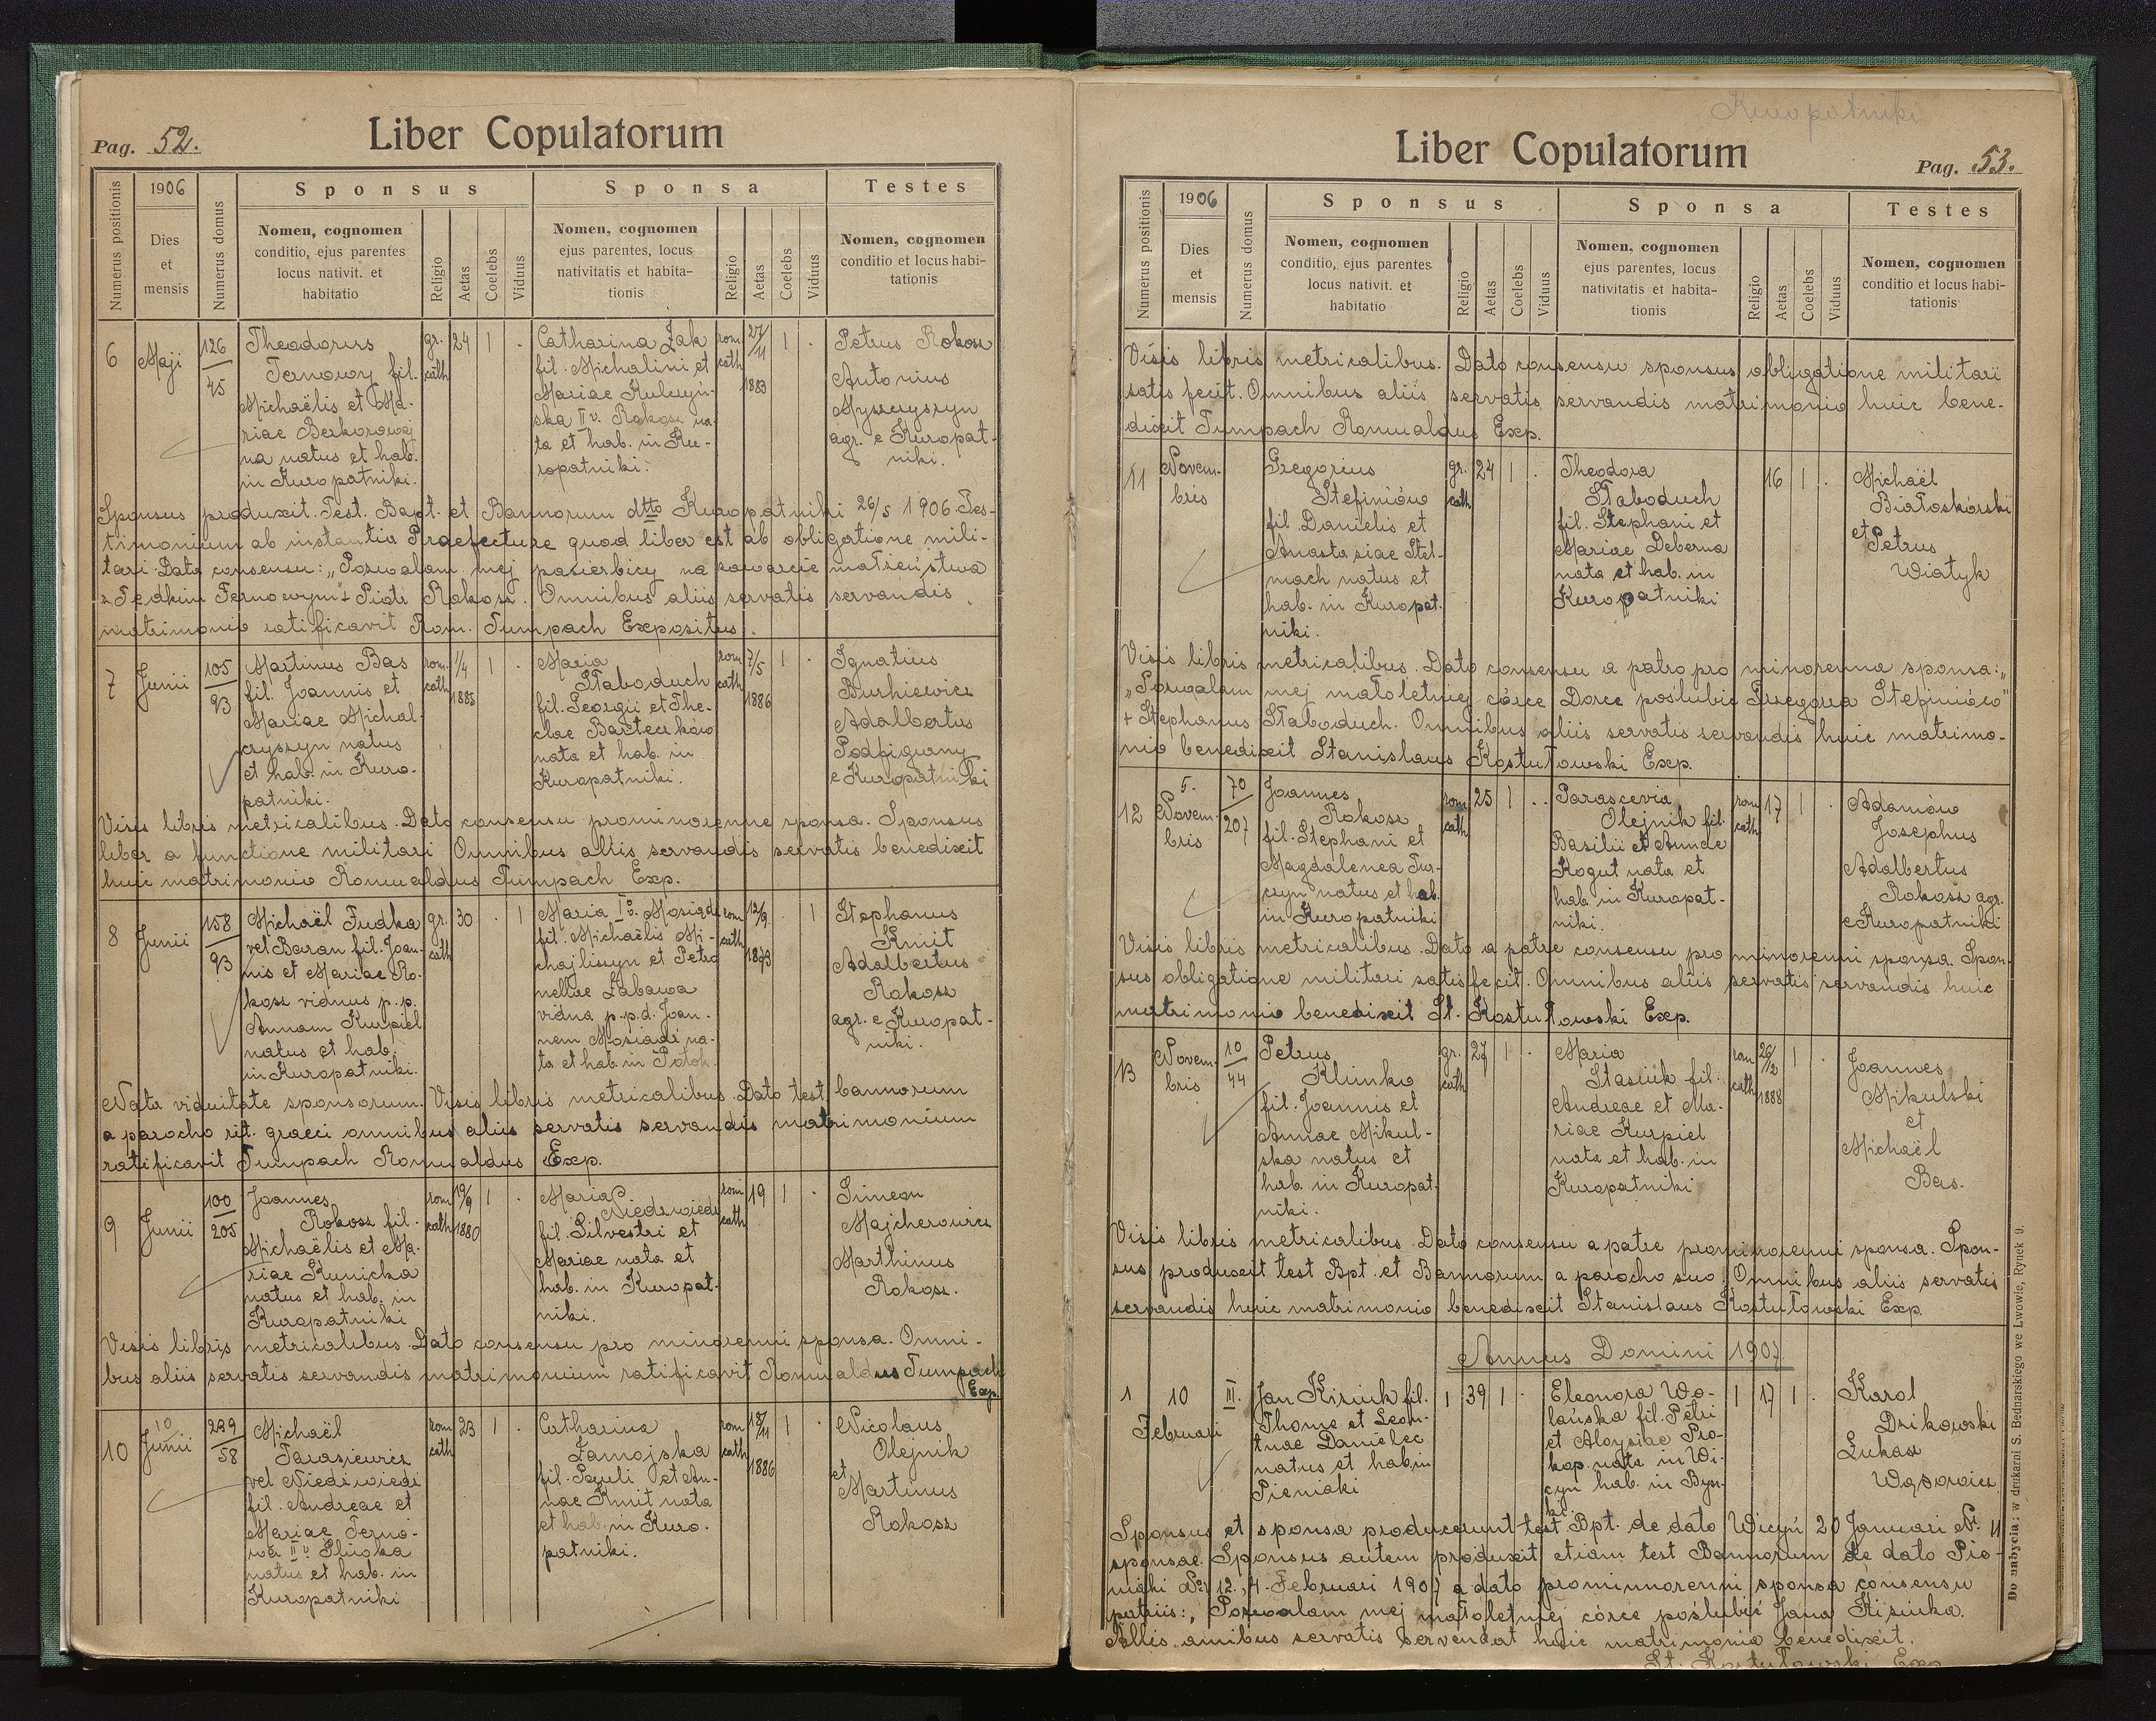 Pag. 52.
Liber Copulatorum
Numerus positionis
1906
Dies
et
mensis
Numerus domus
Sponsus
Nomen, cognomen
conditio, ejus parentes
locus nativit. et
habitatio
Religio
Aetas
Coelebs
Viduus
Sponsa
Nomen, cognomen
ejus parentes, locus
nativitatis et habita-
tionis
Religio
Aetas
Coelebs
Viduus
Testes
Nomen, cognomen
conditio et locus habi-
tationis
6
Maji
126
45
Theodorus
Ternowy fil.
Michaëlis et Ma-
riae
na natus et hab.
in Kuropatniki.
gr.
cath
24
1
Catharina Żak
fil. Michalini et
Mariae Kulczyń-
ska II v. Rokosz na-
ta et hab. in Ku-
ropatniki.
rom
cath
27/11
1883
1
Petrus Rokosz
Antonius
Myszczyszyn
agr. e Kuropat-
niki.
Sponsus produxit Test. Bapt. et Bannorum dtto Kuropatniki 26/5 1906. Tes-
timonium ab instantia Praefecture quod liber est ab obligatione mili-
tari. Dato consensu: „Pozwalam mej pasierbicy na zawarcie małżeństwa
z Fedkiem Ternowym + Piotr Rokosz. Omnibus aliis servatis servandis
matrimonio ratificavit Rom. Tumpach Expositus.
7
Junii
105
93
Martinus Bas
fil. Joannis et
Mariae Michal-
czyszyn natus
et hab. in Kuro-
patniki.
rom.
cath
1/4
1885
1
Maria
Słaboduch
fil. Georgii et The-
clae Barteczków
nata et hab. in
Kuropatniki.
rom
cath
7/5
1886
1
Ignatius
Burkiewicz
Adalbertus
Podfigurny
e Kuropatniki
Visis libris metricalibus. Dato consensu pro minorenne sponsa. Sponsus
liber a functione militari Omnibus aliis servandis servatis benedixit
huic matrimonio Romualdus Tumpach Exp.
8
Junii
158
93
Michaël Fudka
vel Baran fil. Joan-
nis et Mariae Ro-
kosz viduus p. p.
Annam Kurpiel
natus et hab.
in Kuropatniki.
gr.
cath
30
1
Maria I v. Mosiądz
fil. Michaëlis Mi-
chajliszyn et Petro
nellae Zabawa
vidua p.p.d. Joan-
nem Mosiądz na-
ta et hab. in Potok.
rom
cath
12/9
1873
1
Stephanus
Kmit
Adalbertus
Rokosz
agr. e Kuropat-
niki.
Nota viduitate sponsorum. Visis libris metricalibus. Dato test. bannorum
a parocho rit. graeci omnibus aliis servatis servandis matrimonium
ratificavit Tumpach Romualdus Exp.
9
Junii
100
205
Joannes
Rokosz fil.
Michaëlis et Ma-
riae Kunicka
natus et hab. in
Kuropatniki
rom
cath
19/9
1880
1
Maria
Niedzwiedź
fil. Silvestri et
Mariae nata et
hab. in Kuropat-
niki.
rom
cath
19
1
Simeon
Majcherowicz
Marthinus
Rokosz.
Visis libris metricalibus. Dato consensu pro minorenni sponsa. Omni-
bus aliis servatis servandis matrimonium ratificavit Romualdus Tumpach
Exp.
10
10
Junii
239
58
Michaël
Tarasiewicz
vel Niedzwiedź
fil. Andreae et
Mariae Terno-
wa II v.
natus et hab. in
Kuropatniki
rom
cath
23
1
Catharina
Zamojska
fil. Pauli et An-
nae Kmit nata
et hab. in Kuro-
patniki.
rom
cath
18/11
1886
1
Nicolaus
Olejnik
et
Martinus
Rokosz
Kuropatniki
Liber Copulatorum
Pag. 53.
Numerus positionis
1906
Dies
et
mensis
Numerus domus
Sponsus
Nomen, cognomen
conditio, ejus parentes
locus nativit. et
habitatio
Religio
Aetas
Coelebs
Viduus
Sponsa
Nomen, cognomen
ejus parentes, locus
nativitatis et habita-
tionis
Religio
Aetas
Coelebs
Viduus
Testes
Nomen, cognomen
conditio et locus habi-
tationis
Visis libris metricalibus. Dato consensu sponsus obligatione militari
satis fecit. Omnibus aliis servatis servandis matrimonio huic bene-
dixit Tumpach Romualdus Exp.
11
Novem-
bris
Gregorius
Stefiniów
fil. Danielis et
Anastasiae Stel-
mach natus et
hab. in Kuropat-
niki.
gr.
cath
24
1
Theodora
Słaboduch
fil. Stephani et
Mariae Deberna
nata et hab. in
Kuropatniki
16
1
Michaël
Białoskórski
et Petrus
Wiatyk
Visis libris metricalibus. Dato consensu a patro pro minorenna sponsa:
„Pozwalam mej małoletniej córce Dorce poślubić Grzegorza Stefiniów"
+ Stephanus Słaboduch. Omnibus aliis servatis servandis huic matrimo-
nio benedixit Stanislaus Kostułowski Exp.
12
5.
Novem-
bris
70
207
Joannes
Rokosz
fil. Stephani et
Magdalenea Tur-
czyn natus et hab.
in Kuropatniki
rom
cath
25
1
Parascevia
Olejnik fil.
Basilii et Annae
Kogut nata et
hab in Kuropat-
niki.
rom
cath
17
1
Adamów
Josephus
Adalbertus
Rokosz agr.
e Kuropatniki
Visis libris metricalibus. Dato a patre consensu pro minorenni sponsa. Spon-
sus obligatione militari satisfecit. Omnibus aliis servatis servandis huic
matrimonio benedixit St. Kostułowski Exp.
13
Novem-
bris
10
44
Petrus
Klimko
fil. Joannis et
Annae Mikul-
ska natus et
hab. in Kuropat-
niki.
gr.
cath
27
1
Maria
Stasiuk fil.
Andreae et Ma-
riae Kurpiel
nata et hab. in
Kuropatniki
rom
cath
26/12
1888
1
Joannes
Mikulski
et
Michaël
Bas.
Visis libris metricalibus. Dato consensu a patre pro minorenni sponsa. Spon-
sus produxit test Bpt. et Bannorum a parocho suo. Omnibus aliis servatis
servandis huic matrimonio benedixit Stanislaus Kostułowski Exp.
Annus Domini 1907
1
10
Februari
III.
Jan Kiziuk fil.
Thome et Leon-
tnae Danielec
natus et hab in
Pieniaki
1
39
1
Eleonora Wo-
lańska fil. Petri
et Aloysiae Pro-
kop. nata in Wi-
cyń hab. in Byn-
ki
1
17
1
Karol
Dzikowski
Łukasz
Wąsowicz
Sponsus et sponsa producerunt test Bpt. de dato Wicyń 20 Januari No 11
sponsae. Sponsus autem produxit etiam test Bannorum de dato Pie-
niaki No 12., 4. Februari 1907 a dato pro minnorenni sponsa consensu
patriis: „Pozwalam mej małoletniej córce poślubić Jana Kiziuka.
Allis omibus servatis servendat huic matrimonia benedixit.
St. Kostułowski Exp.
Do nabycia: w drukarni S. Bednarskiego we Lwowie, Rynek 9.